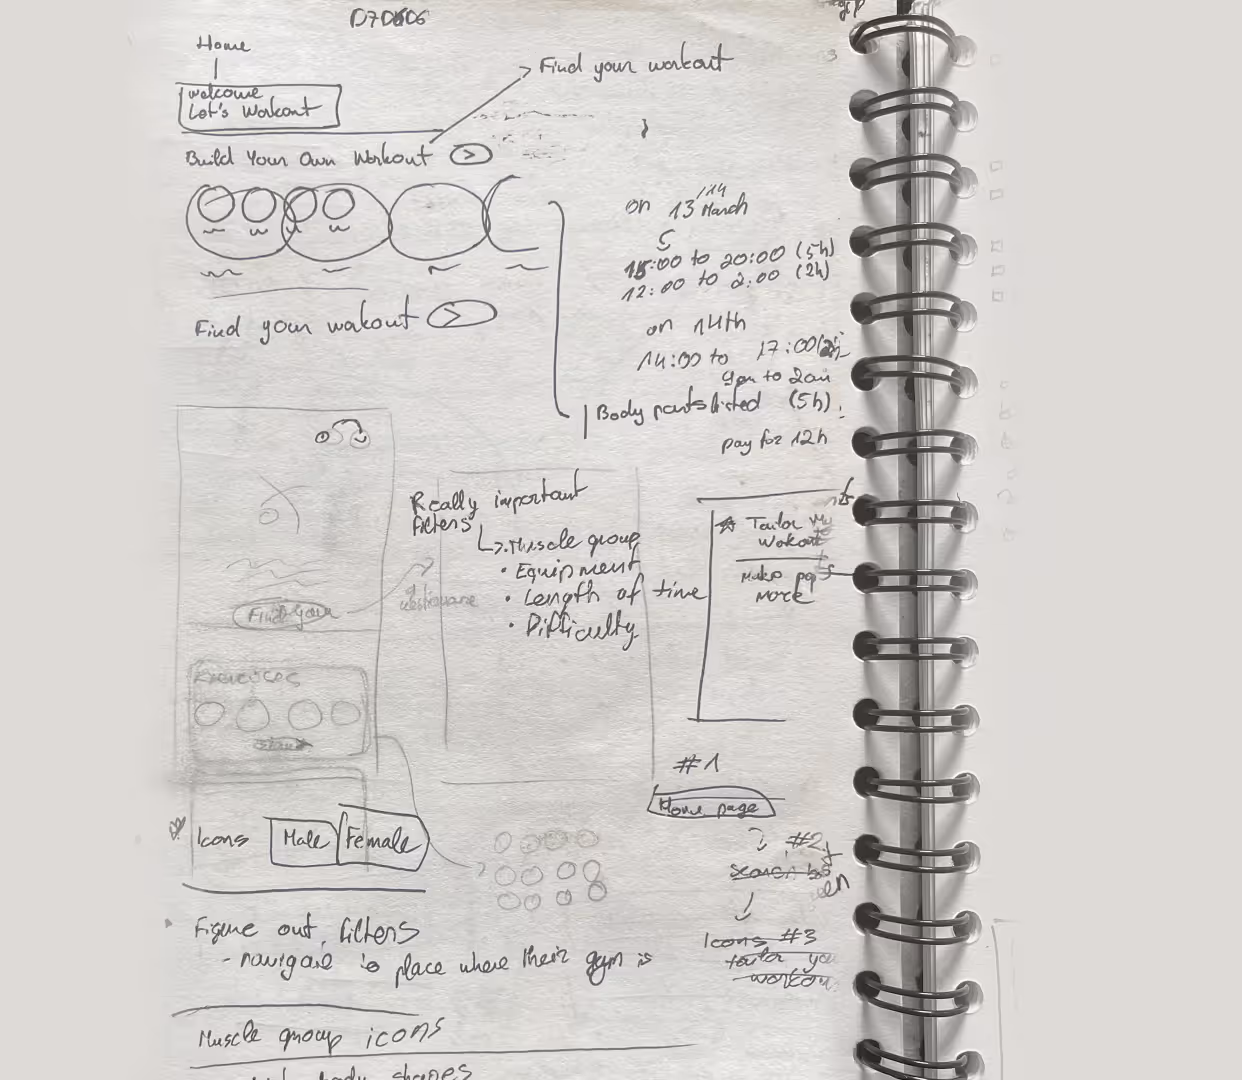 D7D606
Home
welcome
Let's Workout
Find your workout
Build Your Own Workout >
Find your wakout >
on 13/14 March
15:00 to 20:00 (5h)
12:00 to 2:00 (2h)
on 14th
14:00 to 17:00
9pm to 2am
Body parts listed (5h)
pay for 12h
Really important
filters
Muscle group
• Equipment
• Length of time
• Difficulty
Tailor My
Workout
Make pop
more
Find your
Exercises
#1
Home page
#2
Icons Male Female
Icons #3
tailor you
workou
Figure out filters
- navigate to place where their gym is
Muscle group icons
body shapes